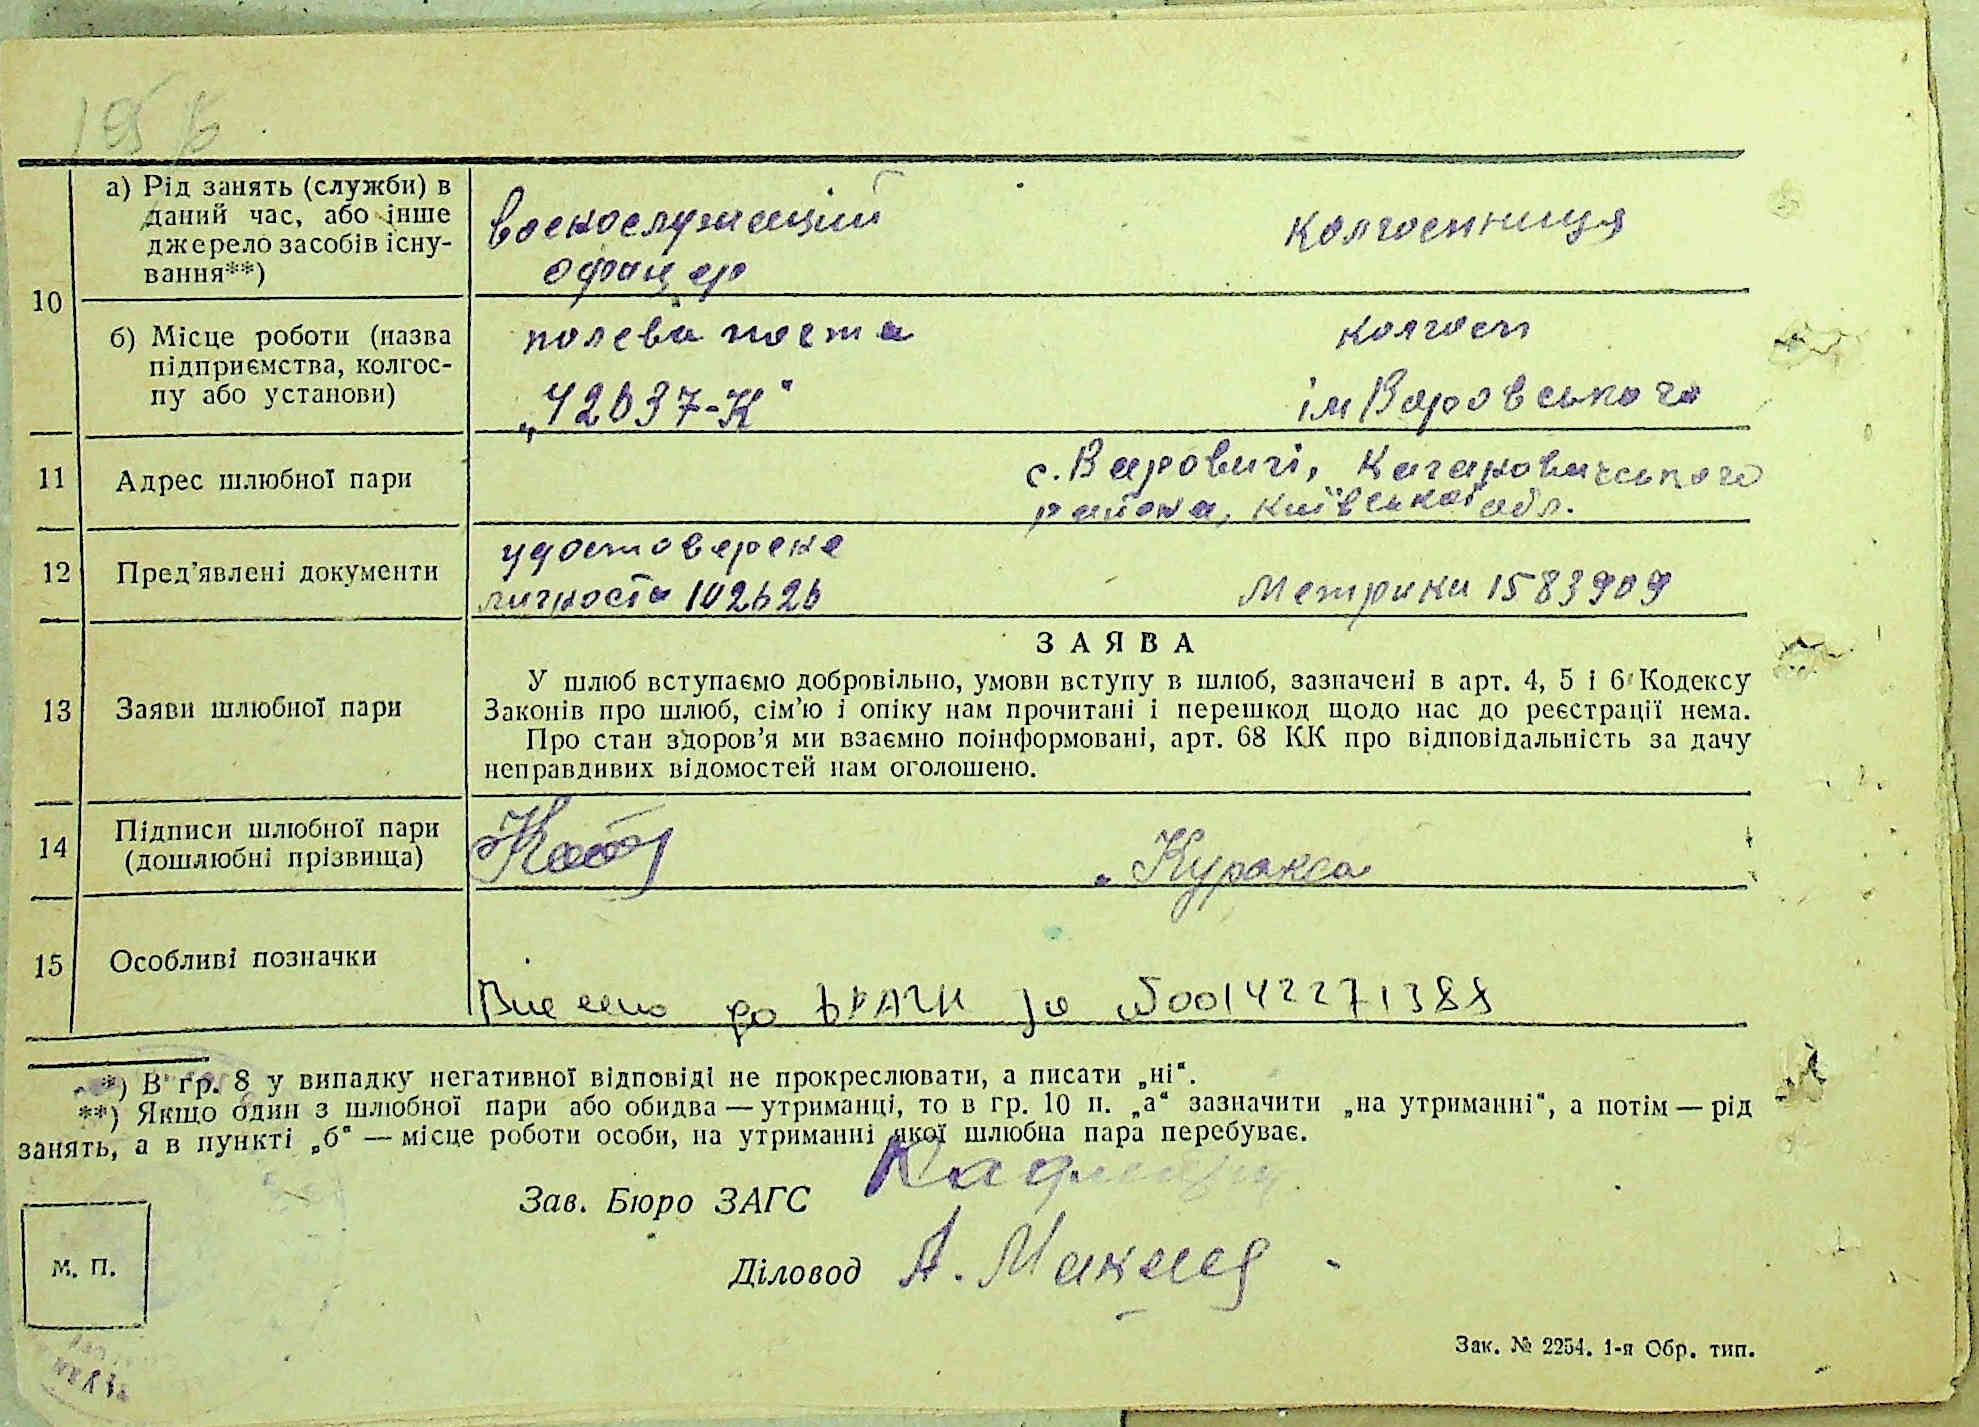 10
а) Рід занять (служби) в
даний час, або інше
джерело засобів існу-
вання**)
воєнослужещий
офицер
колгоспниця
б) Місце роботи (назва
підприємства, колгос-
пу або установи)
полева поста
„42637-К“
колгосп
ім Воровського
11
Адрес шлюбної пари
с. Варовичі, Кагановичського
района, Київської обл.
12
Пред’явлені документи
удостоверене
личности 102626
Метрики 1583909
13
Заяви шлюбної пари
ЗАЯВА
У шлюб вступаємо добровільно, умови вступу в шлюб, зазначені в арт. 4, 5 і 6 Кодексу
Законів про шлюб, сім’ю і опіку нам прочитані і перешкод щодо нас до реєстрації нема.
Про стан здоров’я ми взаємно поінформовані, арт. 68 КК про відповідальність за дачу
неправдивих відомостей нам оголошено.
14
Підписи шлюбної пари
(дошлюбні прізвища)
Куракса
15
Особливі позначки
Внесено до ДРАЦС за №00142271388
*) В гр. 8 у випадку негативної відповіді не прокреслювати, а писати „ні“.
**) Якщо один з шлюбної пари або обидва — утриманці, то в гр. 10 п. „а“ зазначити „на утриманні“, а потім — рід
занять, а в пункті „б“ — місце роботи особи, на утриманні якої шлюбна пара перебуває.
Зав. Бюро ЗАГС
Діловод А.
М. П.
Зак. № 2254. 1-я Обр. тип.